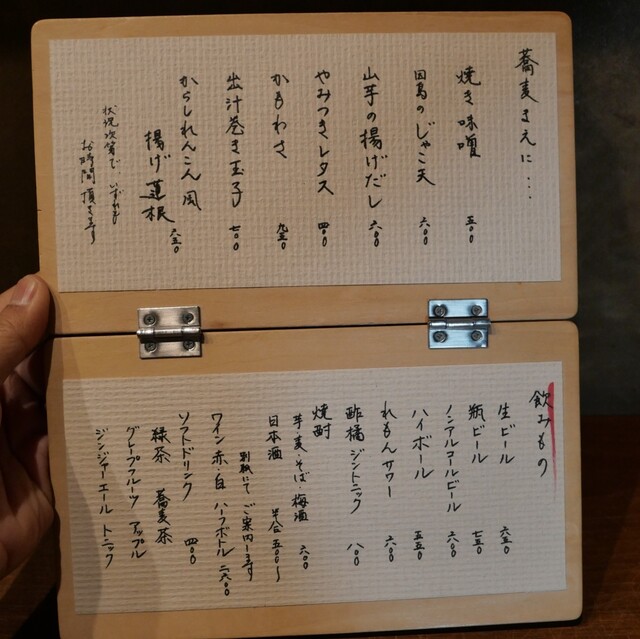 蕎麦まえに…
焼き味噌 五〇〇
因島のじゃこ天 六〇〇
山芋の揚げだし 六〇〇
やみつきレタス 四〇〇
かもわさ 九五〇
出汁巻き玉子 七〇〇
からしれんこん風
揚げ蓮根 六五〇
状況次第で、いずれも
お時間頂きます
飲みもの
生ビール 六五〇
瓶ビール 七五〇
ノンアルコールビール 六〇〇
ハイボール 五五〇
れもんサワー 六〇〇
酢橘ジントニック 八〇〇
焼酎
芋・麦・そば・梅酒 六〇〇
日本酒 半合五〇〇〜
別紙にてご案内します
ワイン 赤・白 ハーフボトル 二六〇〇
ソフトドリンク 四〇〇
緑茶 蕎麦茶
グレープフルーツ アップル
ジンジャーエール トニック